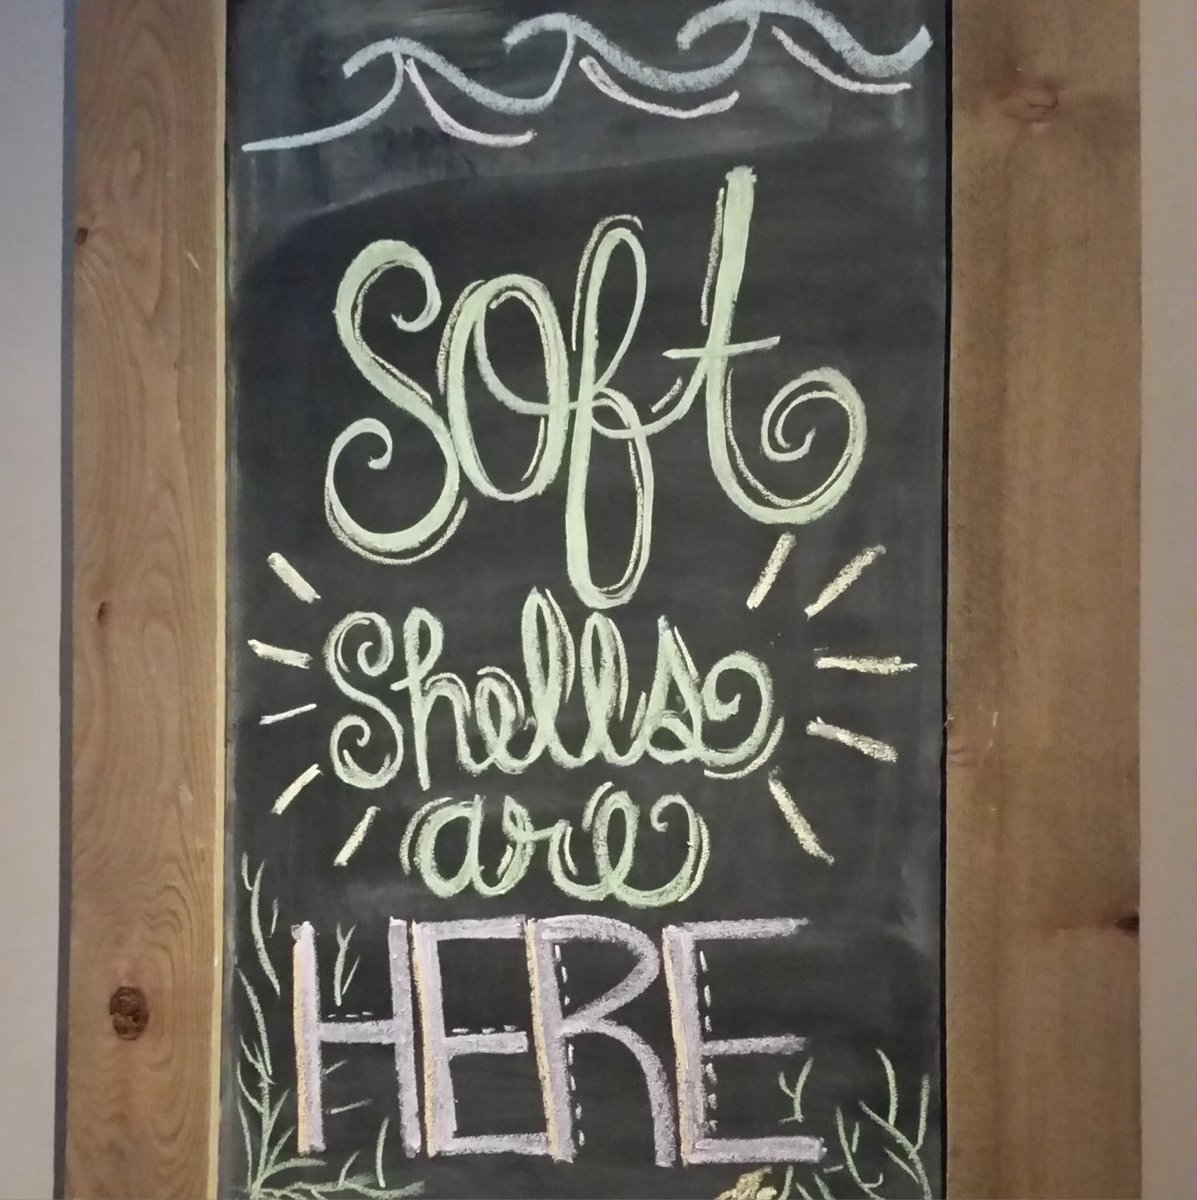 Soft
Shells
are
HERE